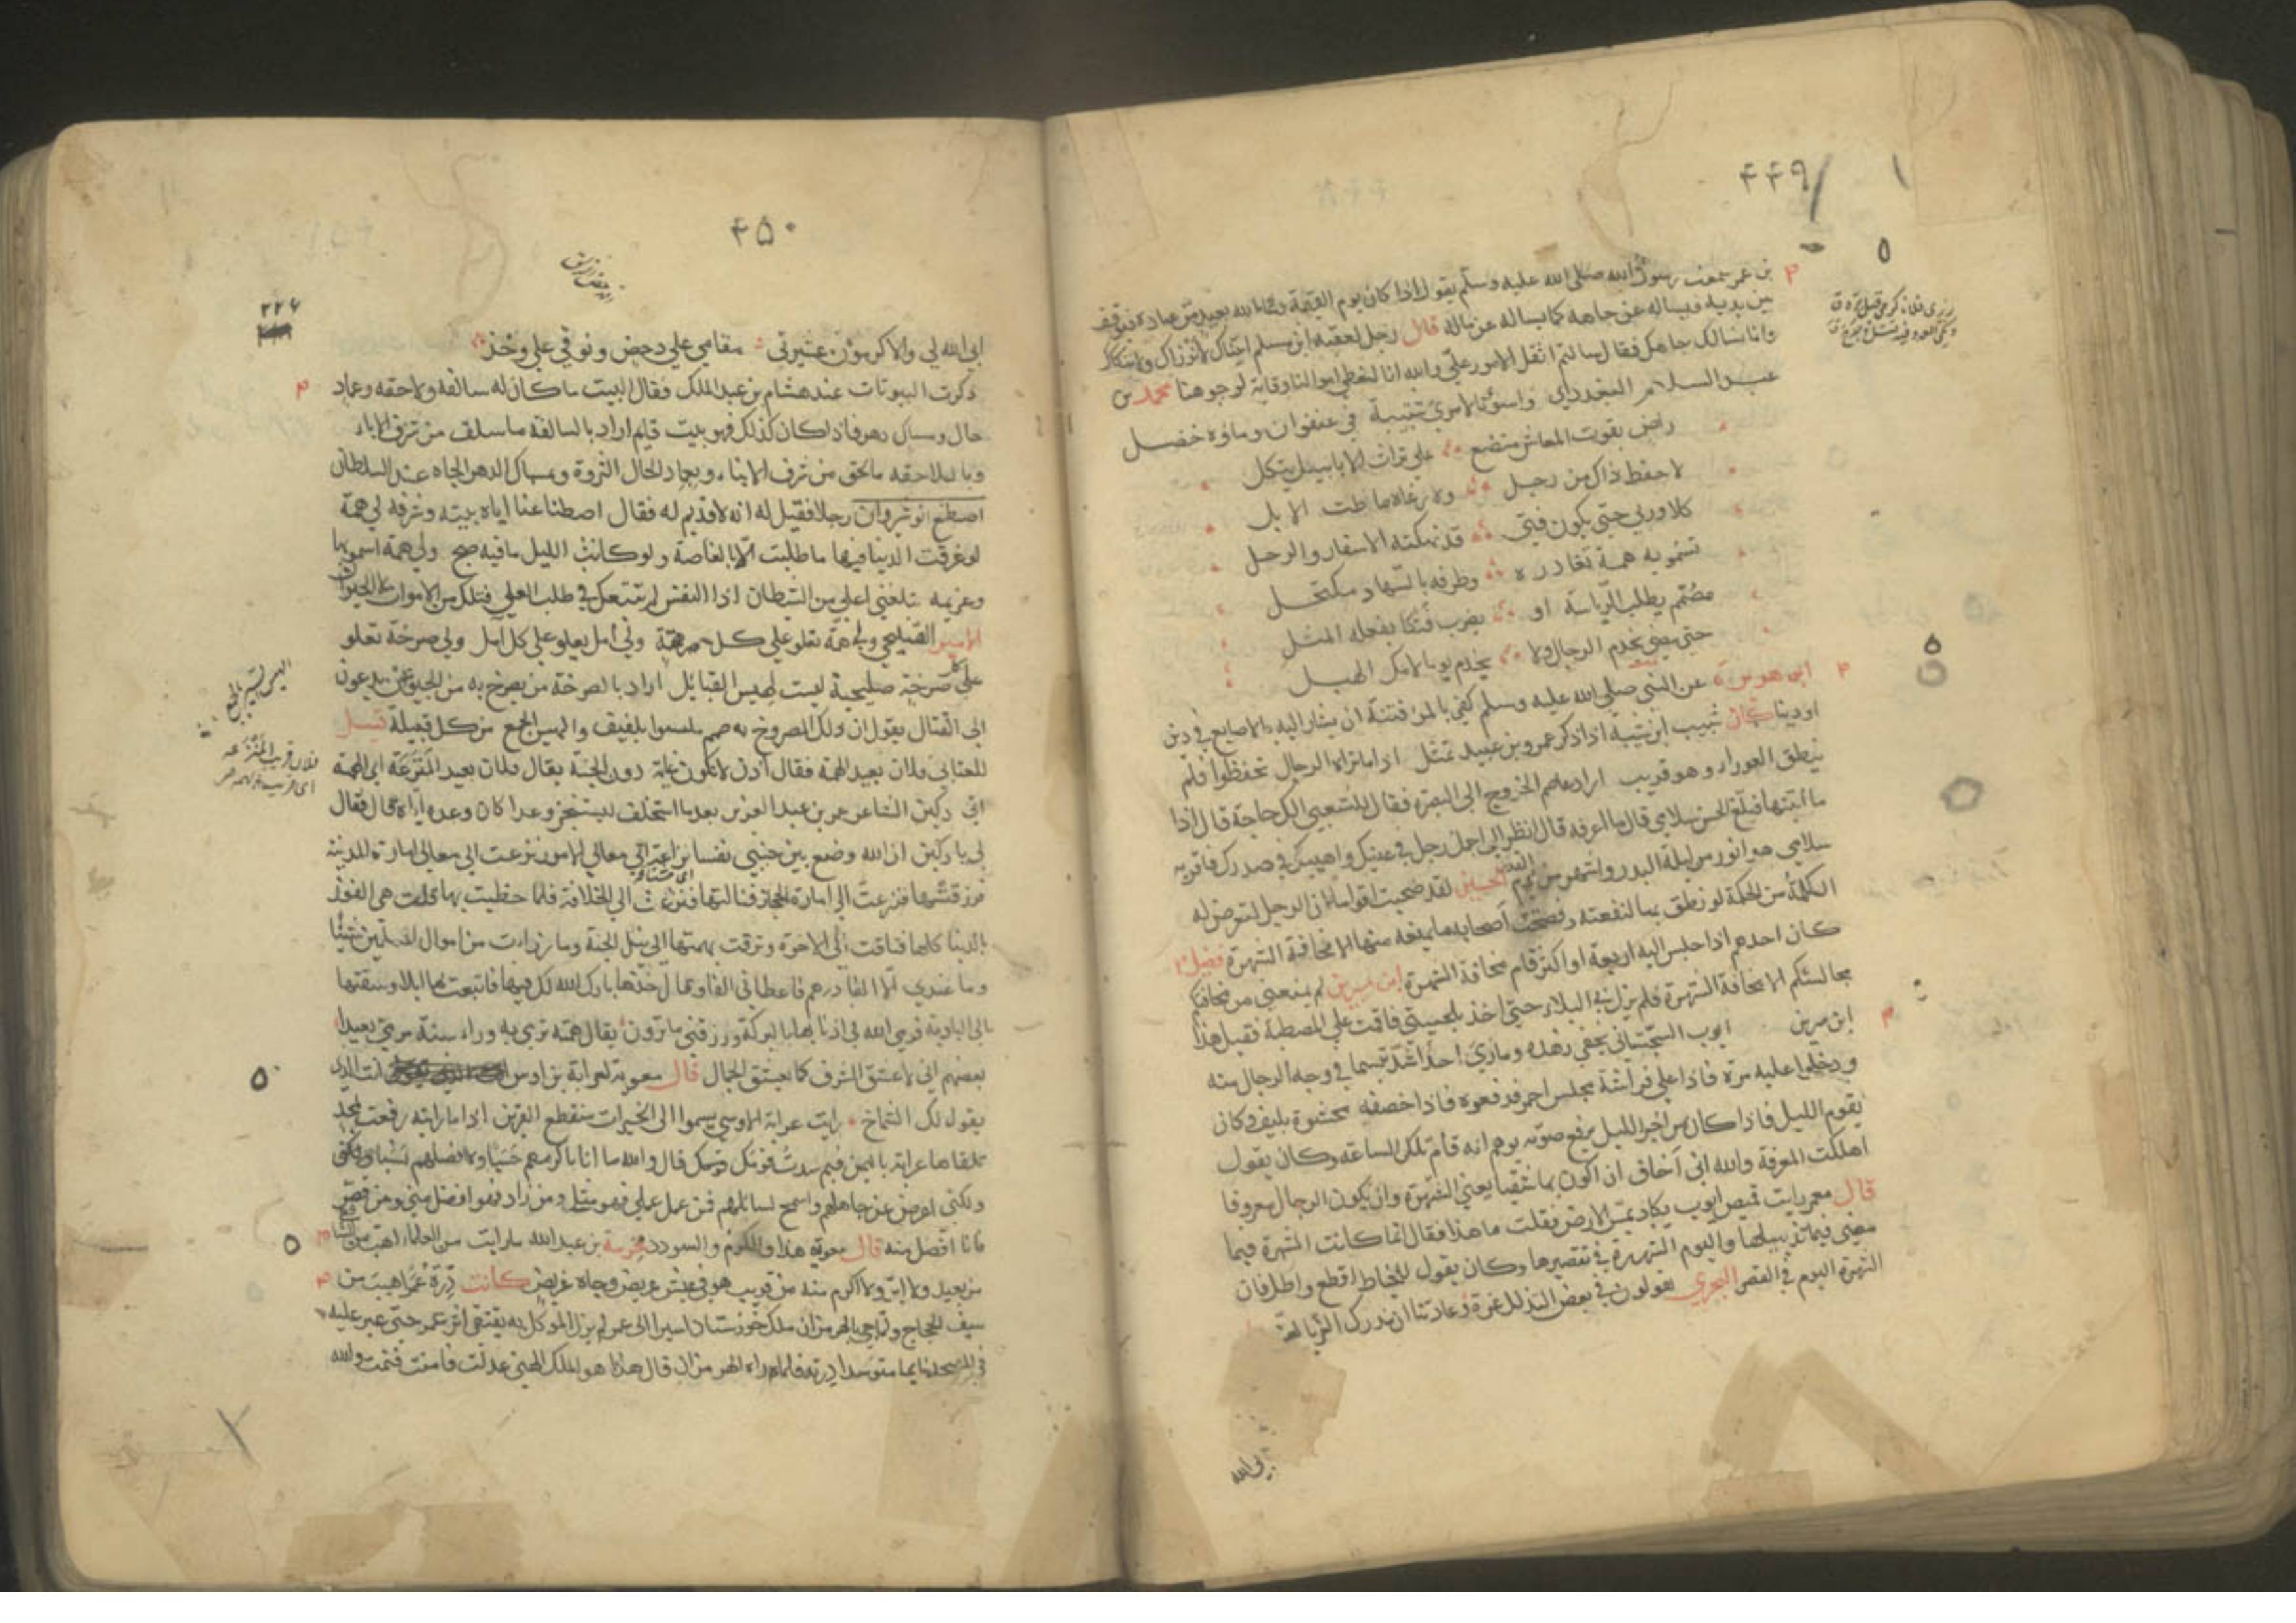 ۴۴۹
بن عمر سمعت رسول الله صلى الله عليه وسلم يقول اذا كان يوم القيمة دعا الله بعبد من عباده فيوقف
بين يديه فيساله عن جاهه كما يساله عن ماله قال رجل لعقبة ابن مسلم اتيناك لا لنرزاك ولا ننكاك
وانا نسالك جاهك فقال سالتم اثقل الامور علي والله انا لنعطي اموالنا وقاية لوجوهنا محمد بن
عبد السلام البغدردي واسوتا لامرئ شبيبة في عنفوان وماؤه خضل
راض بقوت المعاش متضع على تراث الاباء يتكل
لا حفظ ذاك من رجل ولا رعاه ما اطت الابل
كلا وربي حتى يكون فتى قد نهكته الاسفار والرحل
تسمو به همة تغادره وطرفه بالسهاد مكتحل
مصمم يطلب الرياسة او يضرب فتكا بفعله المثل
حتى يخدم الرجال ولا يخدم يوما لامك الهبل
ابو هريرة عن النبي صلى الله عليه وسلم كفى بالمرء فتنة ان يشار اليه بالاصابع في دين
او دنيا كان شبيب ابن شيبة اذا ذكر عمرو بن عبيد تمثل اذا ما تراه الرجال تحفظوا فلم
ينطق العوراء وهو قريب اراد عاصم الخروج الى البصرة فقال للشعبي الك حاجة قال اذا
ما اتيتها فبلغ الحسن سلامي قال ما اعرفه قال انظر الى اجمل رجل في عينيك واهيبك في صدرك فاقريه
سلامي هو انور من ليلة البدر واشهر من يوم الحسين لقد صحبت اقواما ان الرجل لتعرض له
الكلمة من الحكمة لو نطق بها لنفعته ونفعت اصحابه ما يمنعه منها الا مخافة الشهرة فضيل
كان احدهم اذا جلس اليه اربعة او اكثر قام مخافة الشهرة ابن سيرين لم يمنعني من مجالستكم
مجالستكم الا مخافة الشهرة فلم يزل بي البلاء حتى اخذ بلحيتي فاقمت على المصطبة فقيل هذا
ابن سيرين ايوب السجستاني يخفي زهده وما رئي احدا اشد تبسما في وجه الرجال منه
ودخلوا عليه مرة فاذا على فراشه مجلس احمر فدفعوه فاذا خصفة محشوة بليف وكان
يقوم الليل فاذا كان من اخر الليل يرفع صوته يوهم انه قام تلك الساعة وكان يقول
اهلكت المعرفة والله اني اخاف ان اكون بها شقيا يعني الشهرة وان يكون الرجال معروفا
قال معمر رايت قميص ايوب يكاد يمس الارض فقلت ما هذا فقال انما كانت الشهرة فيما
مضى فيما تذييلها واليوم الشهرة في تقصيرها وكان يقول للخياط اقطع واطل فان
الشهرة اليوم في القصر البحتري يقولون في بعض التذلل غرة وعادتنا ان ندرك العز بالعز
ابى الله
۴۵۰
۲۲۶
ابى الله لي والاكرمون عشيرتي مقامي على دحض ونوقي على وخز
ذكرت البيوتات عند هشام بن عبد الملك فقال البيت ما كان له سالفه ولاحقه وعماد
حال ومساك دهر فاذا كان كذلك فهو بيت قايم اراد بالسالفة ما سلف من شرف الاباء
وباللاحقه ما لحق من شرف الابناء وبعماد الحال الثروة ومساك الدهر الجاه عند السلطان
اصطنع انوشروان رجلا فقيل له انه لا قديم له فقال اصطناعنا اياه بيته وشرفه لي همة
لو غرقت الدنيا فيها ما طلبت الا بالغاصة ولو كانت الليل ما فيه صبح ولي همة اسمو بها
وعزيمه تبلغني اعلى من الشيطان اذا النفس لم تتعبك في طلب العلى فتلك من الاموات لا الحيوان
الامير الصليحي ولي همة تعلو على كل همة ولي امل يعلو على كل امل ولي صرخة تعلو
على كل صرخة صليحية ليست لهيس القبائل اراد بالصرخة من يصرخ به من الجيوش يدعون
الى القتال يقول ان ولك المصروخ به صميم ليسوا بلفيف والهيس الجمع من كل قبيلة قيل
للعتابي فلان بعيد الهمة فقال اذن لا يكون غايته دون الجنة يقال فلان بعيد المنزعة اي الهمة
اتى دكين الشاعر عمر بن عبد العزيز بعد ما استخلف يستنجز وعدا كان وعده اياه فقال
لي يا دكين ان الله وضع بين جنبي نفسا نزاعة الى معالي الامور نزعت الى معالي امارة المدينة
فرزقتها فنزعت الى امارة الحجاز فنالتها فنزعت الى الخلافة فلما حظيت بها وكانت هي الفوز
بالدنيا كلها فتاقت الى الاخرة وترقت بهمتها الى نيل الجنة وما رزات من اموال المسلمين شيئا
وما عندي الا الفا درهم فاعطاني الفا وقال خذها بارك الله لك فيها فابتعت بها ابلا وسقتها
الى البادية فرمى الله في اذنابها بالبركة ورزقني ما ترون يقال همته ترمي به وراء سنه مرمى بعيدا
بعضهم اني لاعشق الشرف كما يعشق الجمال قال معوية لعرابة بن اوس انت الذي
يقول لك الشماخ رايت عرابة الاوسي يسموا الى الخيرات منقطع القرين اذا ما راية رفعت لمجد
تلقاها عرابة باليمين فبم سدت قومك قال والله ما انا باكرمهم حسبا ولا افضلهم نسبا
ولكني اعرض عن جاهلهم واسمح لسائلهم فمن عمل عملي فهو مثلي ومن زاد فهو افضل مني ومن قصر
فانا افضل منه قال معوية هذا والله الكرم والسودد بن عبد الله ما رايت من العلماء اهيب من الشافعي
من بعيد ولا ابر ولا اكرم منه من قريب هو في عيش عريض وجاه عريض كانت درة عمر اهيب من
سيف الحجاج ولما جئ بالهرمزان ملك خوزستان اسيرا الى عمر لم يزل الموكل به يقتفي اثر عمر حتى عثر عليه
في المسجد نايما متوسدا درته فلما راه الهرمزان قال هذا هو الملك الهني عدلت فامنت فنمت والله